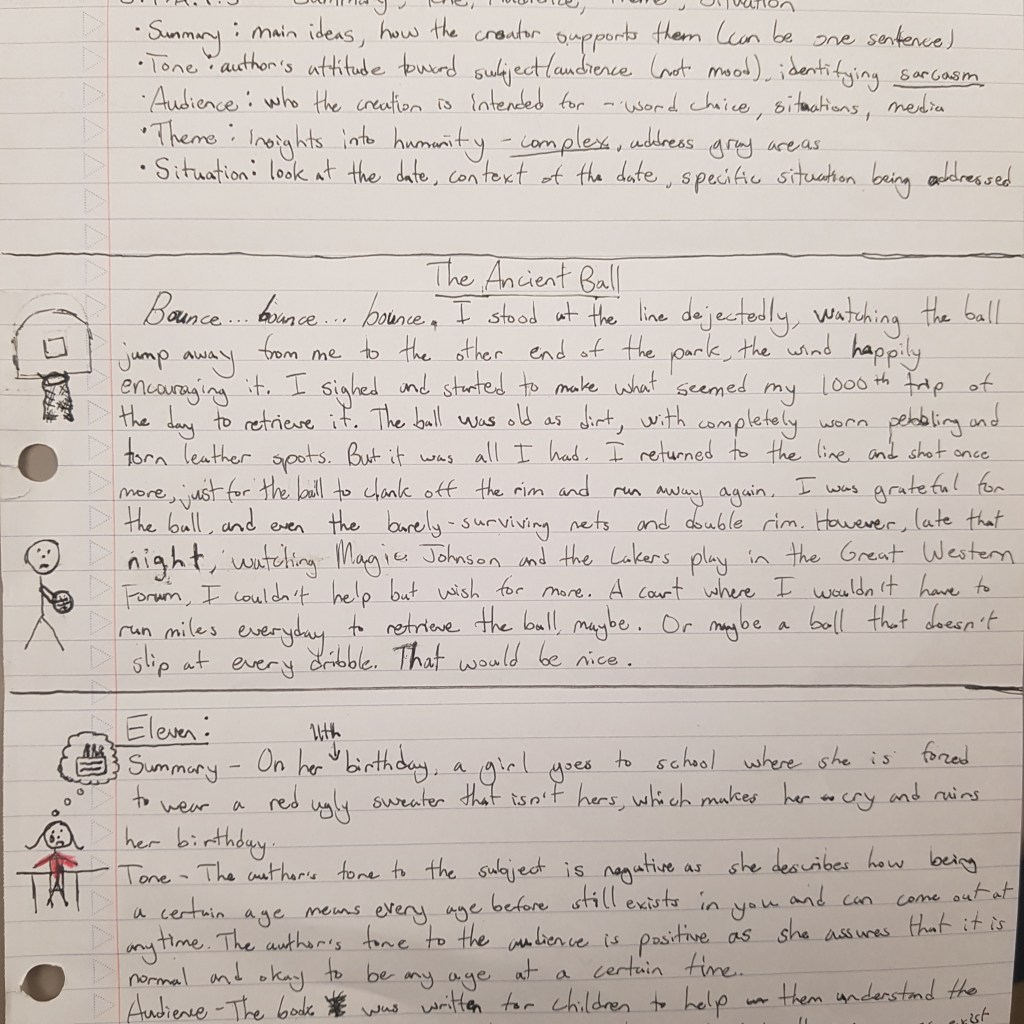 Summary, Tone, Audience, Theme, Situation
• Summary: main ideas, how the creator supports them (can be one sentence)
• Tone: author's attitude toward subject/audience (not mood), identifying sarcasm
• Audience: who the creation is intended for - word choice, situations, media
• Theme: Insights into humanity - complex, address gray areas
• Situation: look at the date, context of the date, specific situation being addressed
The Ancient Ball
Bounce... bounce... bounce. I stood at the line dejectedly, watching the ball
jump away from me to the other end of the park, the wind happily
encouraging it. I sighed and started to make what seemed my 1000th trip of
the day to retrieve it. The ball was old as dirt, with completely worn pebbling and
torn leather spots. But it was all I had. I returned to the line and shot once
more, just for the ball to clank off the rim and run away again. I was grateful for
the ball, and even the barely-surviving nets and double rim. However, late that
night, watching Magic Johnson and the Lakers play in the Great Western
Forum, I couldn't help but wish for more. A court where I wouldn't have to
run miles everyday to retrieve the ball, maybe. Or maybe a ball that doesn't
slip at every dribble. That would be nice.
Eleven:
11th
Summary - On her birthday, a girl goes to school where she is forced
to wear a red ugly sweater that isn't hers, which makes her cry and ruins
her birthday.
Tone - The author's tone to the subject is negative as she describes how being
a certain age means every age before still exists in you and can come out at
anytime. The author's tone to the audience is positive as she assures that it is
normal and okay to be any age at a certain time.
Audience - The book was written for children to help them understand the
exist